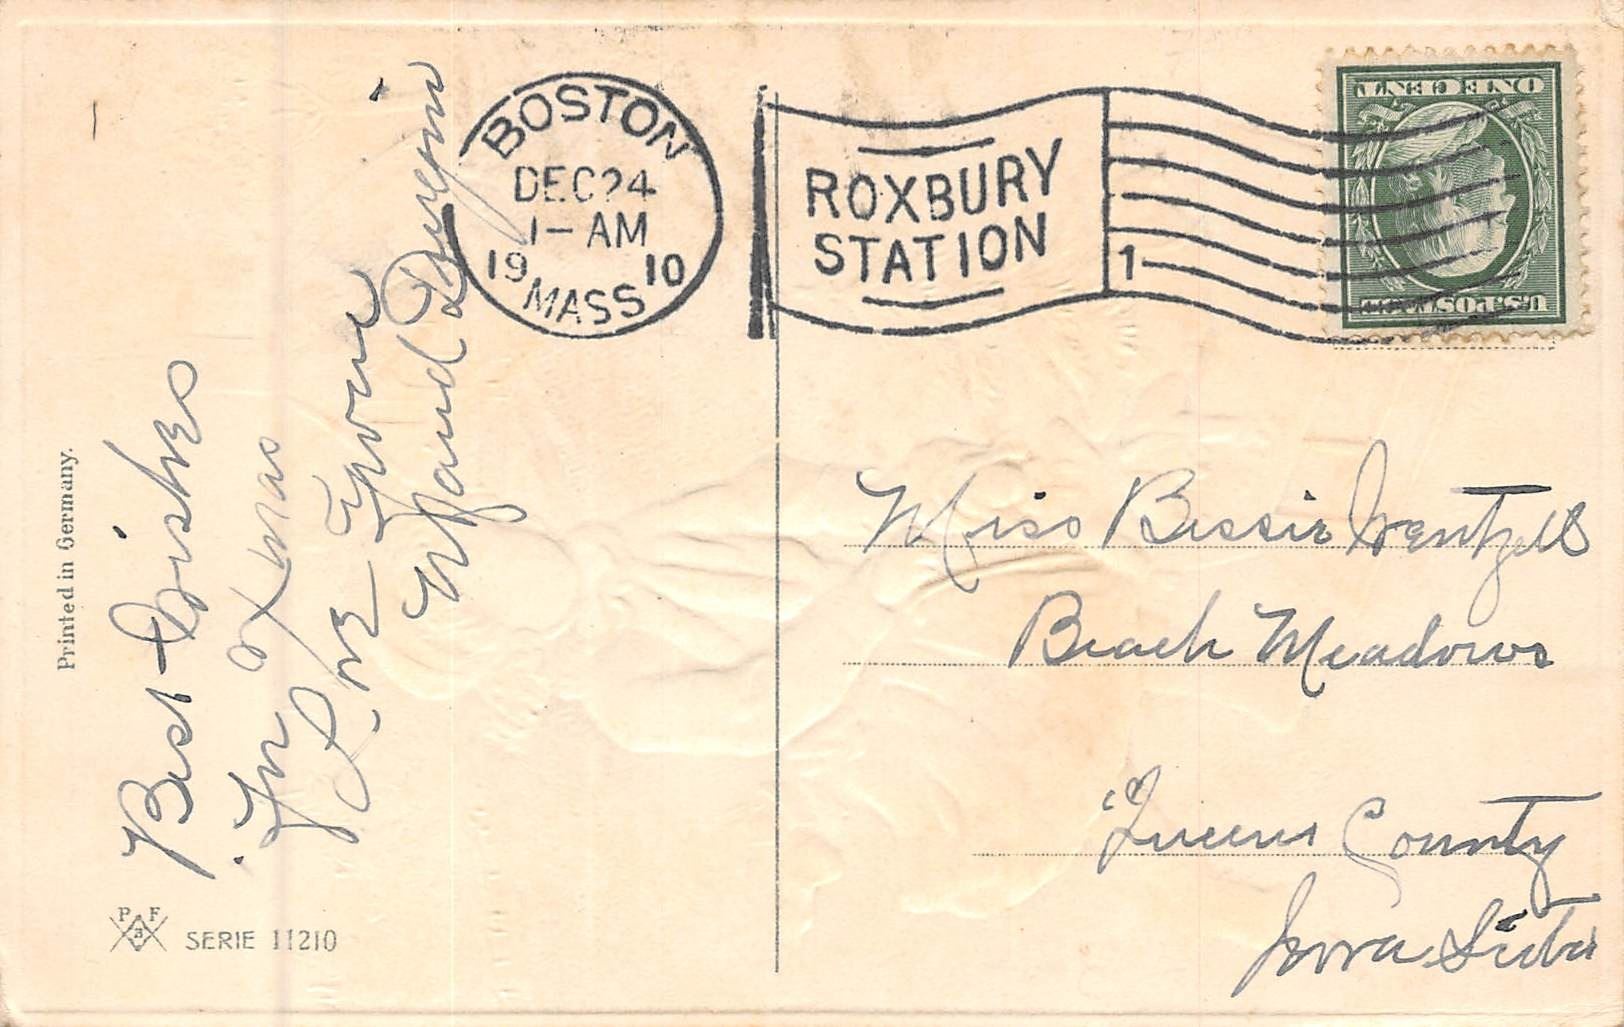 Printed in Germany.
Best Wishes
for Xmas
Love
Maud
P F
a
SERIE 11210
BOSTON
DEC 24
1-AM
1910
MASS
ROXBURY
STATION
1
ONE CENT
U.S. POSTAGE
Miss Bessie Wentzell
Beach Meadows
Queens County
Nova Scotia